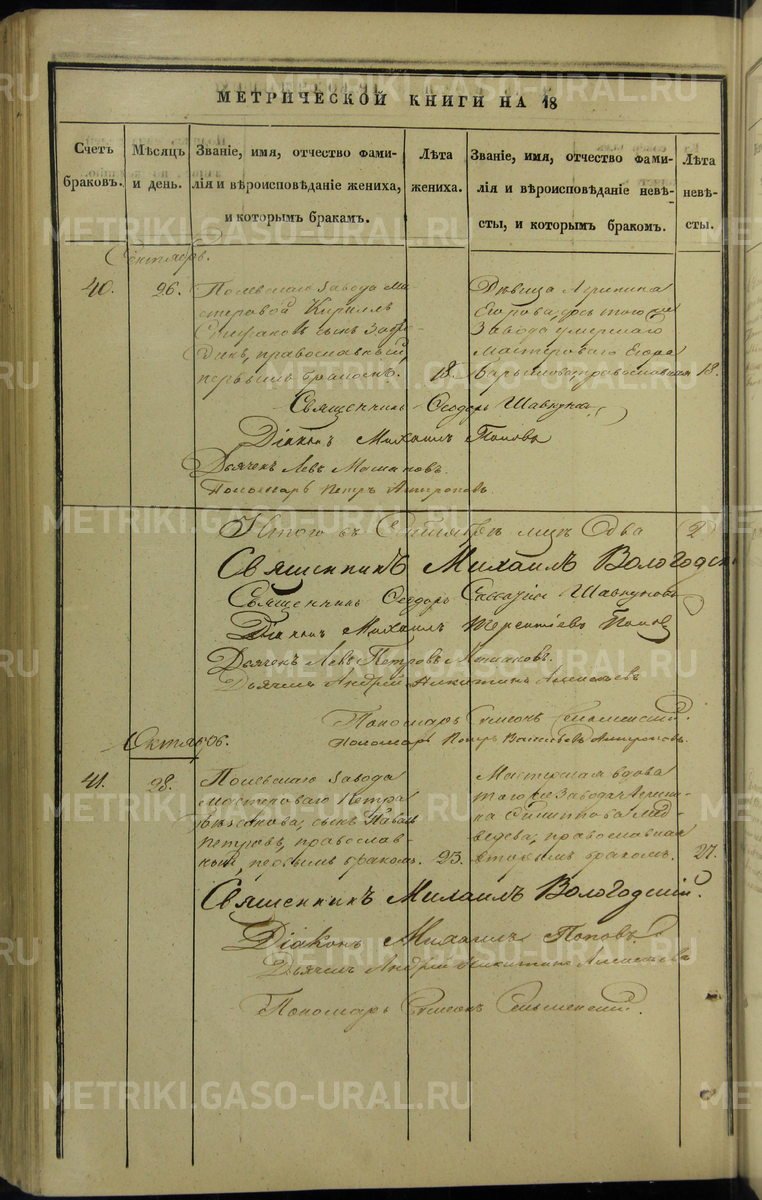 МЕТРИЧЕСКОЙ КНИГИ НА 18
Счетъ браковъ.
Мѣсяцъ и день.
Званіе, имя, отчество фами-
лія и вѣроисповѣданіе жениха,
и которымъ бракамъ.
Лѣта жениха.
Званіе, имя, отчество фами-
лія и вѣроисповѣданіе невѣ-
сты, и которымъ бракомъ.
Лѣта невѣ-
сты.
Сентябрь.
40.
26.
Полевскаго завода Ма-
стеровой Кириллъ
сынъ
православный,
первымъ бракомъ.
18.
Дѣвица
Егорова, дочь того же
Завода умершаго
Мастероваго Егора
православная
18.
Священникъ Ѳеодоръ Шавкуновъ
Діаконъ Михаилъ Поповъ
Дьячекъ Левъ
Пономарь Петръ Антроповъ.
Итого въ Сентябрѣ мцѣ Два (2)
Священникъ Михаилъ Вологодскій
Священникъ Ѳеодоръ Шавкуновъ
Діаконъ Михаилъ Терентіевъ Поповъ
Дьячекъ Левъ Петровъ
Дьячекъ Андрей Никитинъ Алексѣевъ
Пономарь Симеонъ
Пономарь Петръ Васильевъ Антроповъ.
Октябрь.
41.
28.
Полевскаго завода
мастероваго Петра
сынъ Павелъ
Петровъ, православ-
ный, первымъ бракомъ.
23.
Мастерская вдова
того же Завода
Филиппова Мед-
ведева, православная
вторымъ бракомъ.
27.
Священникъ Михаилъ Вологодскій.
Діаконъ Михаилъ Поповъ.
Дьячекъ Андрей Никитинъ Алексѣевъ
Пономарь Симеонъ
METRIKI.GASO-URAL.RU